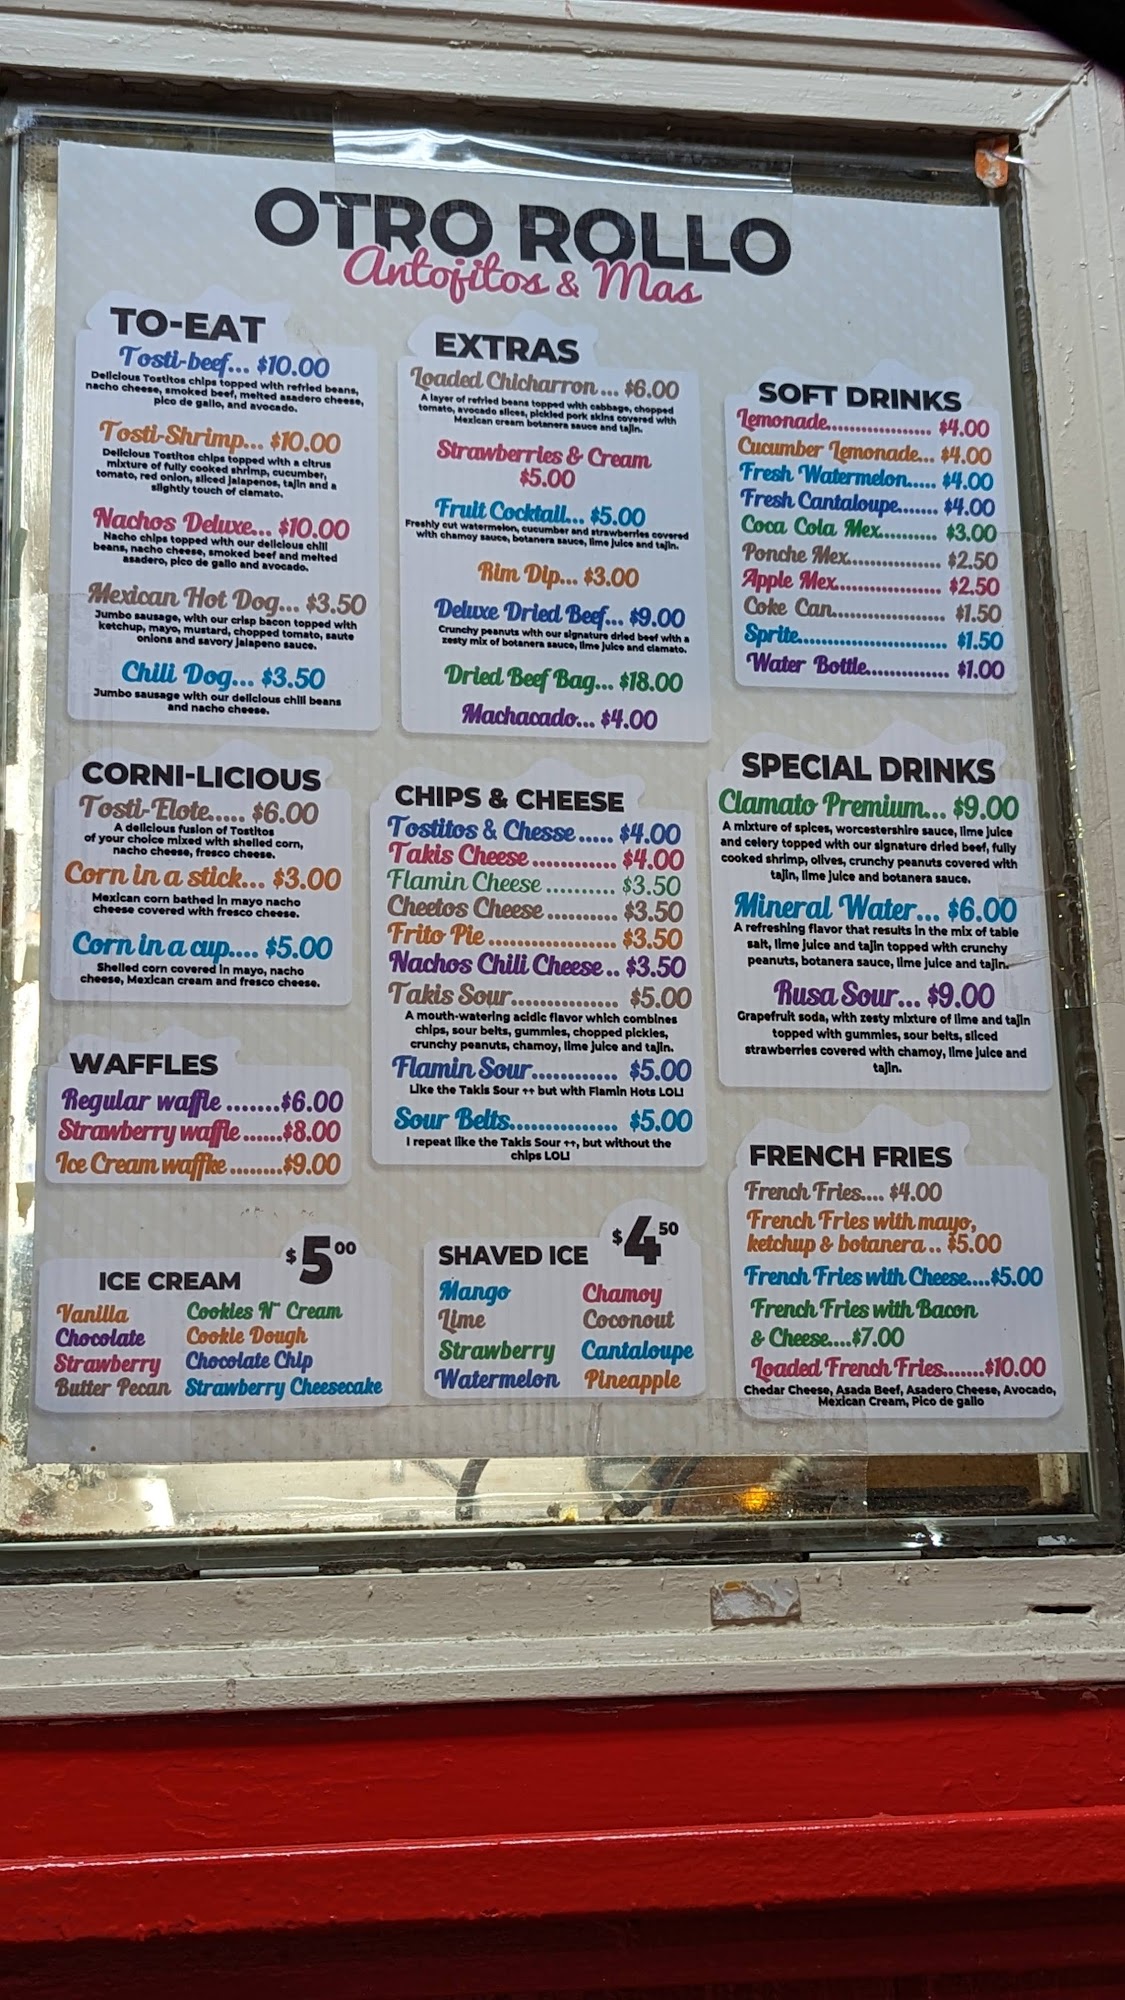 OTRO ROLLO
Antojitos & Mas
TO-EAT
Tosti-beef... $10.00
Delicious Tostitos chips topped with refried beans,
nacho cheese, smoked beef, melted asadero cheese,
pico de gallo, and avocado.
Tosti-Shrimp... $10.00
Delicious Tostitos chips topped with a citrus
mixture of fully cooked shrimp, cucumber,
tomato, red onion, sliced jalapenos, tajin and a
slightly touch of clamato.
Nachos Deluxe... $10.00
Nacho chips topped with our delicious chili
beans, nacho cheese, smoked beef and melted
asadero, pico de gallo and avocado.
Mexican Hot Dog... $3.50
Jumbo sausage, with our crisp bacon topped with
ketchup, mayo, mustard, chopped tomato, saute
onions and savory jalapeno sauce.
Chili Dog... $3.50
Jumbo sausage with our delicious chili beans
and nacho cheese.
EXTRAS
Loaded Chicharron... $6.00
A layer of refried beans topped with cabbage, chopped
tomato, avocado slices, pickled pork skins covered with
Mexican cream botanera sauce and tajin.
Strawberries & Cream
$5.00
Fruit Cocktail... $5.00
Freshly cut watermelon, cucumber and strawberries covered
with chamoy sauce, botanera sauce, lime juice and tajin.
Rim Dip... $3.00
Deluxe Dried Beef... $9.00
Crunchy peanuts with our signature dried beef with a
zesty mix of botanera sauce, lime juice and clamato.
Dried Beef Bag... $18.00
Machacado... $4.00
SOFT DRINKS
Lemonade.................. $4.00
Cucumber Lemonade... $4.00
Fresh Watermelon..... $4.00
Fresh Cantaloupe....... $4.00
Coca Cola Mex.......... $3.00
Ponche Mex................. $2.50
Apple Mex................... $2.50
Coke Can...................... $1.50
Sprite.......................... $1.50
Water Bottle............... $1.00
CORNI-LICIOUS
Tosti-Elote..... $6.00
A delicious fusion of Tostitos
of your choice mixed with shelled corn,
nacho cheese, fresco cheese.
Corn in a stick... $3.00
Mexican corn bathed in mayo nacho
cheese covered with fresco cheese.
Corn in a cup.... $5.00
Shelled corn covered in mayo, nacho
cheese, Mexican cream and fresco cheese.
CHIPS & CHEESE
Tostitos & Chesse ..... $4.00
Takis Cheese ............. $4.00
Flamin Cheese .......... $3.50
Cheetos Cheese ........... $3.50
Frito Pie .................... $3.50
Nachos Chili Cheese .. $3.50
Takis Sour................. $5.00
A mouth-watering acidic flavor which combines
chips, sour belts, gummies, chopped pickles,
crunchy peanuts, chamoy, lime juice and tajin.
Flamin Sour............. $5.00
Like the Takis Sour ++ but with Flamin Hots LOL!
Sour Belts................. $5.00
I repeat like the Takis Sour ++, but without the
chips LOL!
SPECIAL DRINKS
Clamato Premium... $9.00
A mixture of spices, worcestershire sauce, lime juice
and celery topped with our signature dried beef, fully
cooked shrimp, olives, crunchy peanuts covered with
tajin, lime juice and botanera sauce.
Mineral Water... $6.00
A refreshing flavor that results in the mix of table
salt, lime juice and tajin topped with crunchy
peanuts, botanera sauce, lime juice and tajin.
Rusa Sour... $9.00
Grapefruit soda, with zesty mixture of lime and tajin
topped with gummies, sour belts, sliced
strawberries covered with chamoy, lime juice and
tajin.
WAFFLES
Regular waffle .......$6.00
Strawberry waffle ......$8.00
Ice Cream waffke ........$9.00
ICE CREAM $5.00
Vanilla Cookies N" Cream
Chocolate Cookie Dough
Strawberry Chocolate Chip
Butter Pecan Strawberry Cheesecake
SHAVED ICE $4.50
Mango Chamoy
Lime Coconout
Strawberry Cantaloupe
Watermelon Pineapple
FRENCH FRIES
French Fries.... $4.00
French Fries with mayo,
ketchup & botanera .. $5.00
French Fries with Cheese....$5.00
French Fries with Bacon
& Cheese....$7.00
Loaded French Fries.......$10.00
Chedar Cheese, Asada Beef, Asadero Cheese, Avocado,
Mexican Cream, Pico de gallo